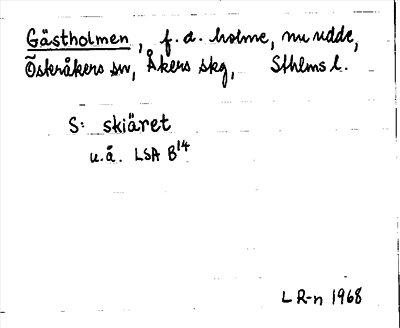 Gästholmen, f. d. holme, nu udde,
Österåkers sn, Åkers skg, Sthlms l.
S: skiäret
u.å. LSA B14
L R-n 1968